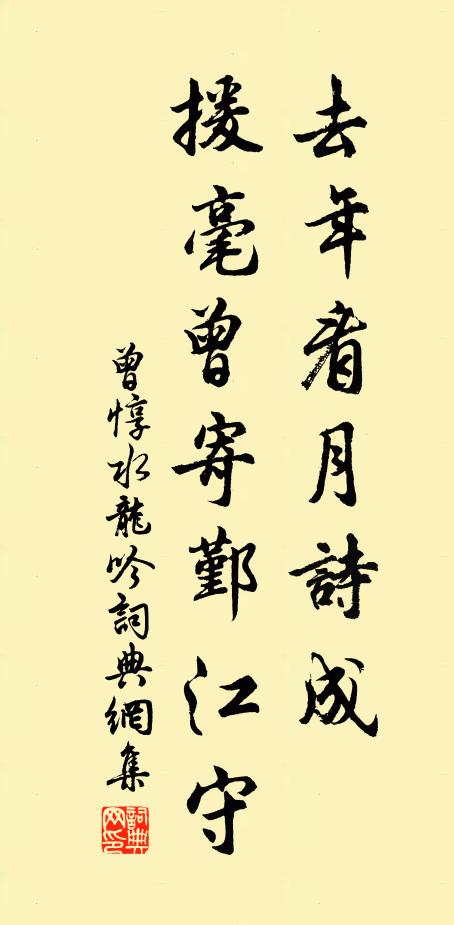 去年看月詩成
援毫曾寄鄞江守
曾惇水龍吟詞典網集
詞典
网印